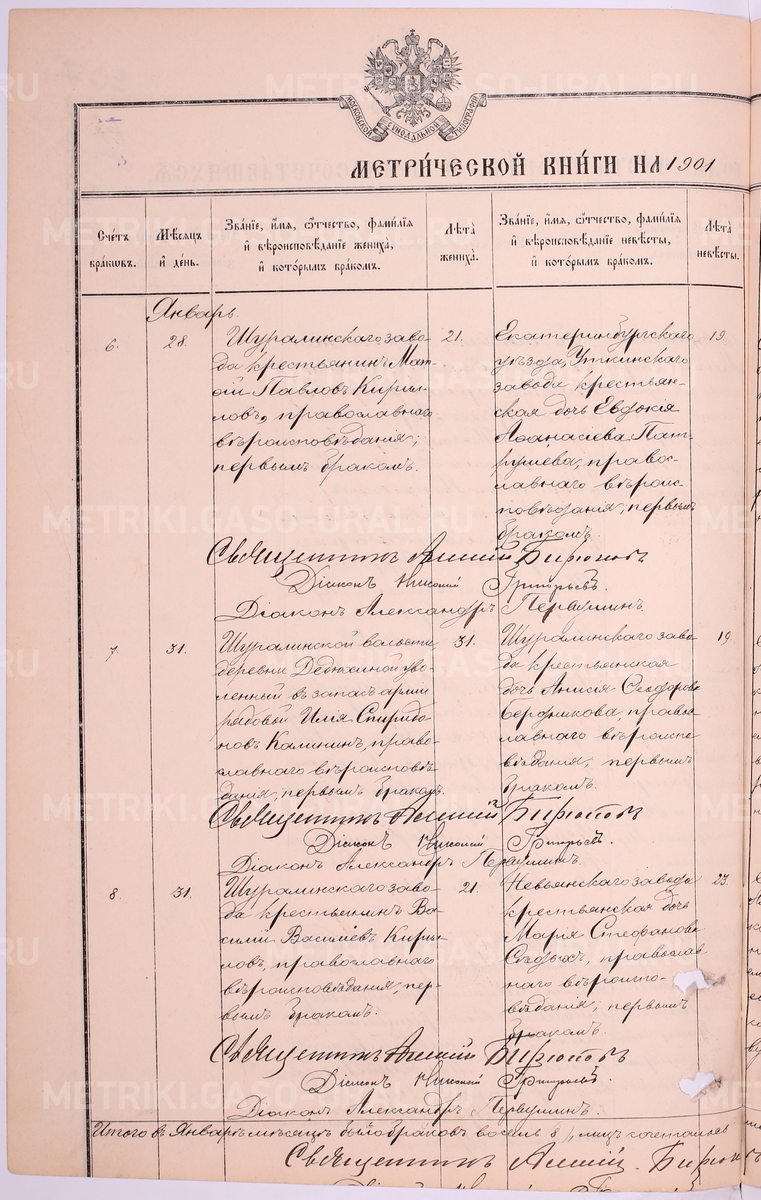 МОСКОВСКОЙ СѴНОДАЛЬНОЙ ТИПОГРАФІИ
МЕТРИ́ЧЕСКОЙ КНИ́ГИ НА 1901
Счетъ бра́ковъ.
Мѣсѧцъ и҆ де́нь.
Зва́нїе, и҆́мѧ, ѻ҆́тчество, фами́лїѧ и҆ вѣроисповѣ́данїе жениха̀, и҆ кото́рымъ бра́комъ.
Лѣ́та жениха̀.
Зва́нїе, и҆́мѧ, ѻ҆́тчество, фами́лїѧ и҆ вѣроисповѣ́данїе невѣ́сты, и҆ кото́рымъ бра́комъ.
Лѣ́та невѣ́сты.
Январь.
6.
28.
Шуралинскаго заво-
да крестьянинъ Мат-
ѳій Павловъ Кирил-
ловъ, православнаго
вѣроисповѣданія;
первымъ бракомъ.
21.
Екатеринбургскаго
уѣзда, Уткинскаго
завода крестьян-
ская дочь Евдокія
Аѳанасіева Пат-
рушева, право-
славнаго вѣроис-
повѣданія, первымъ
бракомъ.
19.
Священникъ Бирюковъ
Діаконъ Григорьевъ.
Діаконъ Александръ Первушинъ.
7.
31.
Шуралинской волости,
деревни уво-
ленный въ запасъ арміи
рядовой Илія Спиридо-
новъ Калининъ, право-
славнаго вѣроисповѣ-
данія, первымъ бракомъ.
31.
Шуралинскаго заво-
да крестьянская
дочь Анисія Ѳеодорова
Бердникова, правос-
лавнаго вѣроиспо-
вѣданія, первымъ
бракомъ.
19.
Священникъ Бирюковъ
Діаконъ Григорьевъ.
Діаконъ Александръ Первушинъ.
8.
31.
Шуралинскаго заво-
да крестьянинъ Ва-
силій Василіевъ Кирил-
ловъ, православнаго
вѣроисповѣданія, пер-
вымъ бракомъ.
21.
Невьянскаго завода
крестьянская дочь
Марія Стефанова
православ-
наго вѣроиспо-
вѣданія; первымъ
бракомъ.
23.
Священникъ Бирюковъ
Діаконъ Григорьевъ.
Діаконъ Александръ Первушинъ.
Итого въ Январѣ мѣсяцѣ было браковъ восемь 8, лицъ
Священникъ
METRIKI.GASO-URAL.RU